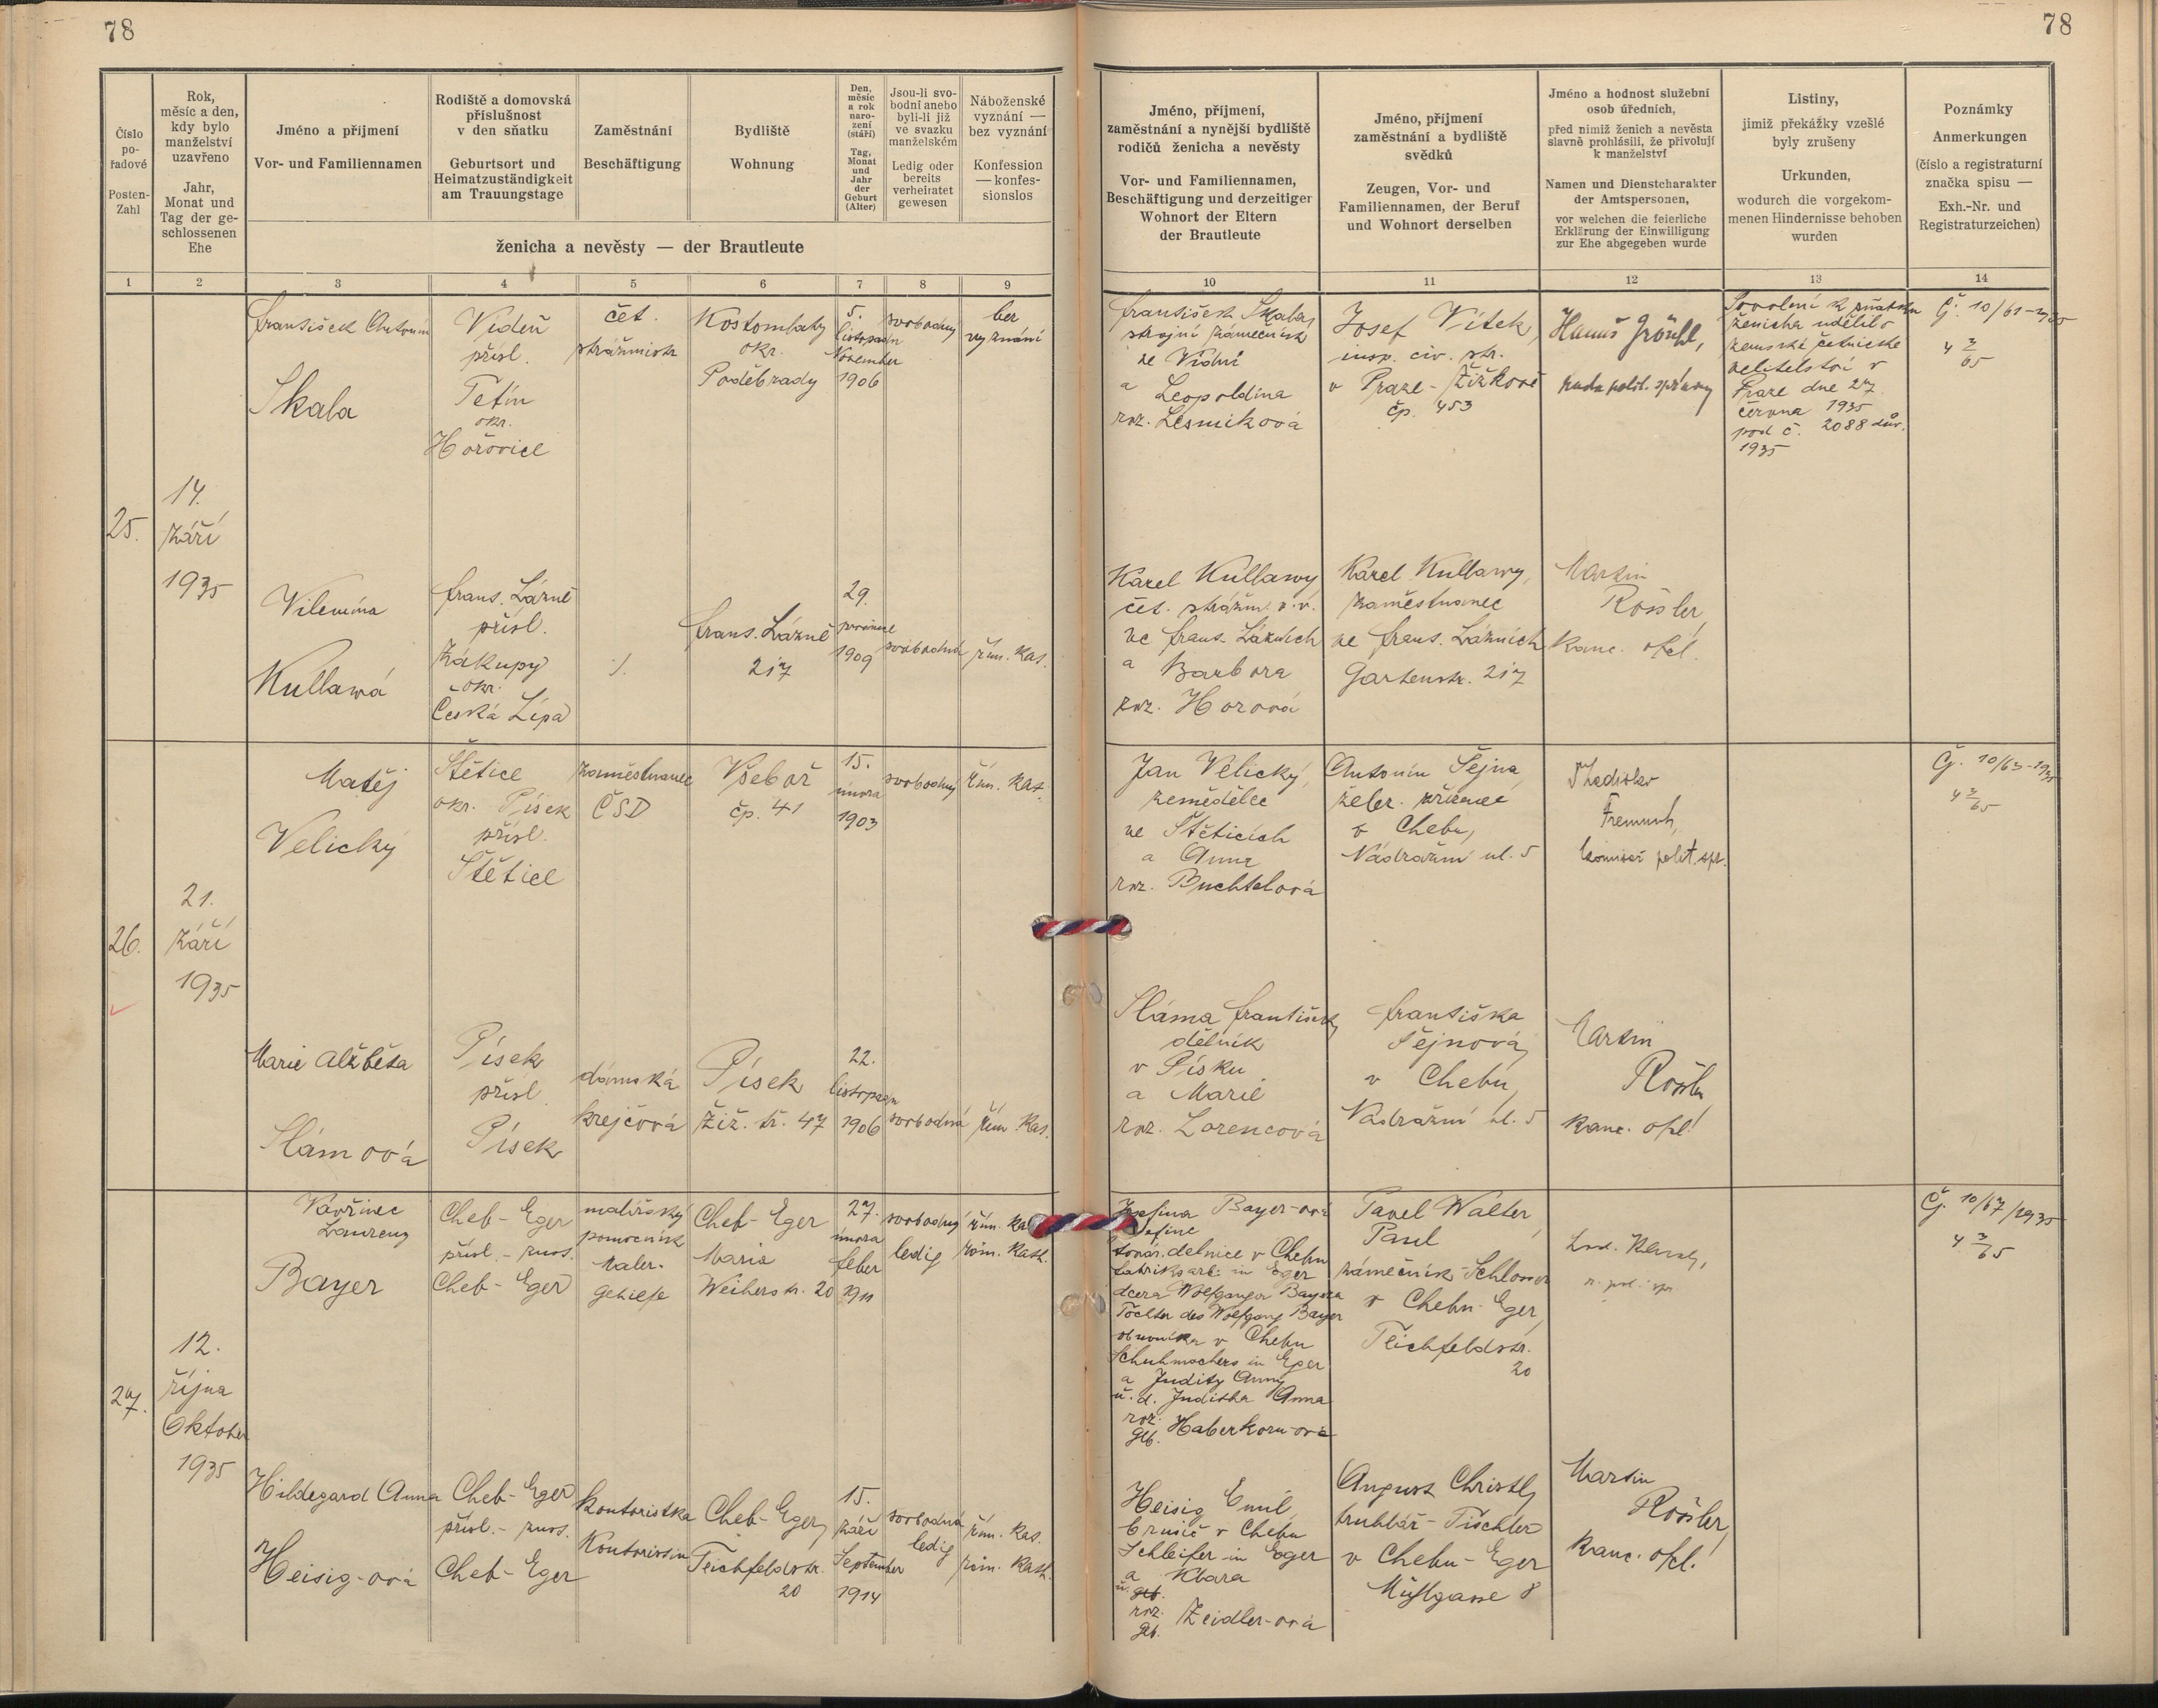 78
78
Číslo
po-
řadové
Posten-
Zahl
Rok,
měsíc a den,
kdy bylo
manželství
uzavřeno
Jahr,
Monat und
Tag der ge-
schlossenen
Ehe
Jméno a příjmení
Vor- und Familiennamen
Rodiště a domovská
příslušnost
v den sňatku
Geburtsort und
Heimatzuständigkeit
am Trauungstage
Zaměstnání
Beschäftigung
Bydliště
Wohnung
Den,
měsíc
a rok
naro-
zení
(stáří)
Tag,
Monat
und
Jahr
der
Geburt
(Alter)
Jsou-li svo-
bodni anebo
byli-li již
ve svazku
manželském
Ledig oder
bereits
verheiratet
gewesen
Náboženské
vyznání —
bez vyznání
Konfession
— konfes-
sionslos
ženicha a nevěsty — der Brautleute
Jméno, příjmení,
zaměstnání a nynější bydliště
rodičů ženicha a nevěsty
Vor- und Familiennamen,
Beschäftigung und derzeitiger
Wohnort der Eltern
der Brautleute
Jméno, příjmení
zaměstnání a bydliště
svědků
Zeugen, Vor- und
Familiennamen, der Beruf
und Wohnort derselben
Jméno a hodnost služební
osob úředních,
před nimiž ženich a nevěsta
slavně prohlásili, že přivolují
k manželství
Namen und Dienstcharakter
der Amtspersonen,
vor welchen die feierliche
Erklärung der Einwilligung
zur Ehe abgegeben wurde
Listiny,
jimiž překážky vzešlé
byly zrušeny
Urkunden,
wodurch die vorgekom-
menen Hindernisse behoben
wurden
Poznámky
Anmerkungen
(číslo a registraturní
značka spisu —
Exh.-Nr. und
Registraturzeichen)
1 2 3 4 5 6 7 8 9 10 11 12 13 14
25.
14.
září
1935
František Antonín
Skala
Vídeň
přísl.
Tetín
okr.
Hořovice
čet.
strážmistr
Kostomlaty
okr.
Poděbrady
5.
listopadu
November
1906
svobodný
bez
vyznání
František Skala,
strojní zámečník
ve Vídni
a Leopoldina
roz. Lesniková
Josef Vítek,
insp. civ. str.
v Praze-Žižkově
čp. 453
Hanuš Gröschl,
rada polit. správy
Povolení k sňatku
ženicha udělilo
zemské četnické
velitelství v
Praze dne 27.
června 1935
pod č. 2088 dův.
1935
Čj. 10/61-1935
4 3/65
Vilemína
Kullawá
Frant. Lázně
přísl.
Zákupy
okr.
Česká Lípa
./.
Frant. Lázně
217
29.
prosince
1909
svobodná
řím. kat.
Karel Kullawy
čet. strážm. v.v.
ve Frant. Lázních
a Barbora
roz. Horová
Karel Kullawy,
zaměstnanec
ve Frant. Lázních
Gartenstr. 217
Martin
Rössler,
kanc. ofcl.
26.
21.
září
1935
Matěj
Velický
Štětice
okr. Písek
přísl.
Štětice
zaměstnanec
ČSD
Všeboř
čp. 41
15.
února
1903
svobodný
řím. kat.
Jan Velický,
zemědělec
ve Štěticích
a Anna
roz. Buchtelová
Antonín Šejna,
želez. zřízenec
v Chebu,
Nádražní ul. 5
komisař polit. spr.
Čj. 10/63-1935
4 3/65
Marie Alžběta
Slámová
Písek
přísl.
Písek
dámská
krejčová
Písek
Žiž. tř. 47
22.
listopadu
1906
svobodná
řím. kat.
Sláma František,
dělník
v Písku
a Marie
roz. Lorencová
Františka
Šejnová,
v Chebu,
Nádražní ul. 5
Martin
Rössler,
kanc. ofcl.
27.
12.
října
Oktober
1935
Vavřinec
Laurenz
Bayer
Cheb-Eger
přísl.-zust.
Cheb-Eger
malířský
pomocník
Maler-
gehilfe
Cheb-Eger
Maria
Weiherstr. 20
27.
února
feber
1911
svobodný
ledig
řím. kat.
röm. kath.
Josefina Bayer-ová
Josefine
továr. dělnice v Chebu
Fabriksarb. in Eger
dcera Wolfganga Bayera
Tochter des Wolfgang Bayer
obuvníka v Chebu
Schuhmachers in Eger
a Judity Anny
u. d. Juditha Anna
roz.
geb. Haberkorn-ová
Pavel Walter,
Paul
zámečník-Schlosser
v Chebu-Eger,
Teichfeldstr.
20
Čj. 10/67/1935
4 3/65
Hildegard Anna
Heisig-ová
Cheb-Eger
přísl.-zust.
Cheb-Eger
kontoristka
Kontoristin
Cheb-Eger,
Teichfeldstr.
20
15.
září
September
1914
svobodná
ledig
řím. kat.
röm. kath.
Heisig Emil,
brusič v Chebu
Schleifer in Eger
a Klara
u. geb.
roz.
geb. Zeidler-ová
August Christl,
truhlář-Tischler
v Chebu-Eger
Mühlgasse 8
Martin
Rössler,
kanc. ofcl.